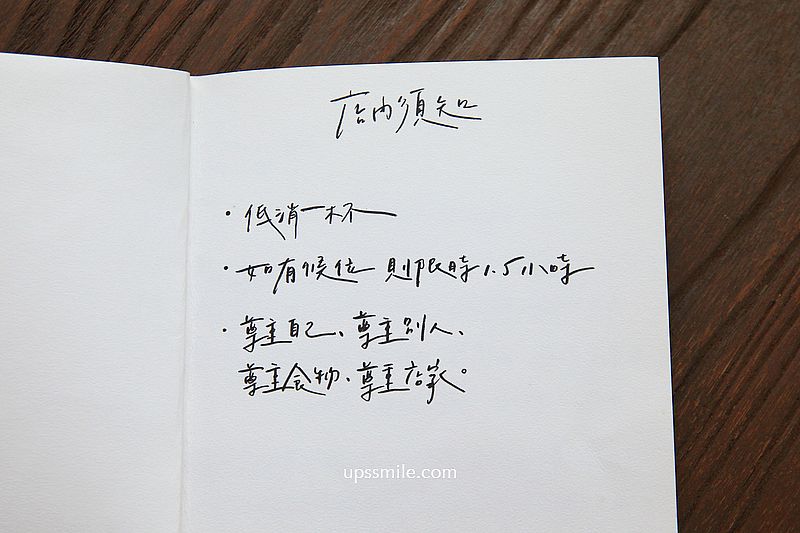 店內須知
・低消一杯
・如有候位 則限時1.5小時
・尊重自己、尊重別人、
尊重食物、尊重店家。
upssmile.com